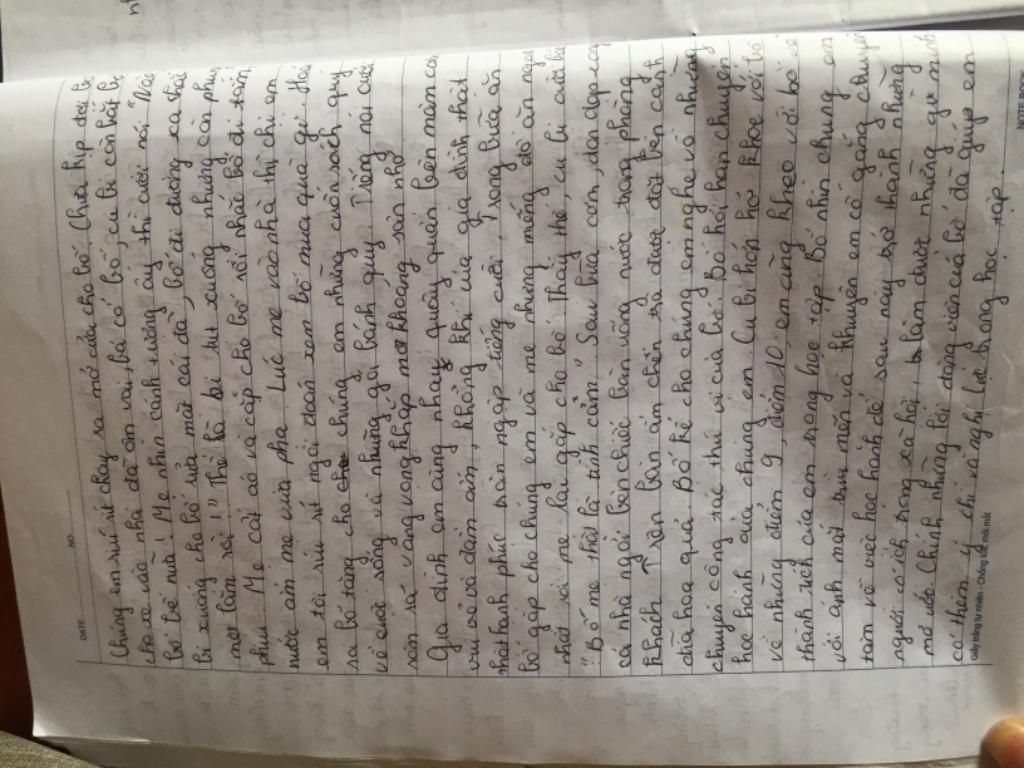 DATE NO.
Chúng em ríu rít chạy ra mở cửa cho bố. Chưa kịp đợi bố
cho xe vào nhà đã ôm vai, bá cổ bố, cu bi còn bắt bố
bế bế nữa! Mẹ nhìn cảnh tượng ấy thì cười nói, "Nào
bi xuống cho bố rửa mặt cái đã, bố đi đường xa chắc
mệt lắm rồi!" Thế là bi tụt xuống nhưng còn phụng
phịu. Mẹ cất áo và cặp cho bố rồi nhắc bố đi tắm,
nước ấm mẹ vừa pha. Lúc mẹ vào nhà thì chị em
em tôi ríu rít ngồi đoán xem bố mua quà gì. Hoá
ra bố tặng cho chúng em những cuốn sách quý
về cuộc sống và những gói bánh quy. Tiếng nói cười
rôm rả vang vọng khắp khoảng sân nhỏ.
Gia đình em cùng nhau quây quần bên mâm cơm
vui vẻ và đầm ấm, không khí của gia đình thật
hạnh phúc tràn ngập tiếng cười. Trong bữa ăn
bố gắp cho chúng em và mẹ những miếng đồ ăn ngon
nhất rồi mẹ lại gắp cho bố. Thấy thế, cu bi cười bảo
"Bố mẹ thật là tình cảm". Sau bữa cơm, dọn dẹp xong
cả nhà ngồi bên chiếc bàn uống nước trong phòng
khách, bàn ấm chén trà được đặt bên cạnh
đĩa hoa quả. Bố kể cho chúng em nghe về những
chuyến công tác thú vị của bố. Bố hỏi han chuyện
học hành của chúng em. Cu bi hớn hở khoe với bố
về những điểm 9 điểm 10, em cũng khoe với bố về
thành tích của em trong học tập. Bố nhìn chúng em
với ánh mắt trìu mến và khuyên em cố gắng chuyên
tâm về việc học hành để sau này trở thành những
người có ích trong xã hội, làm được những gì mình
mơ ước. Chính những lời động viên của bố đã giúp em
có thêm ý chí và nghị lực trong học tập.
Giấy trắng tự nhiên - Chống lóa mắt NOTE BOOK